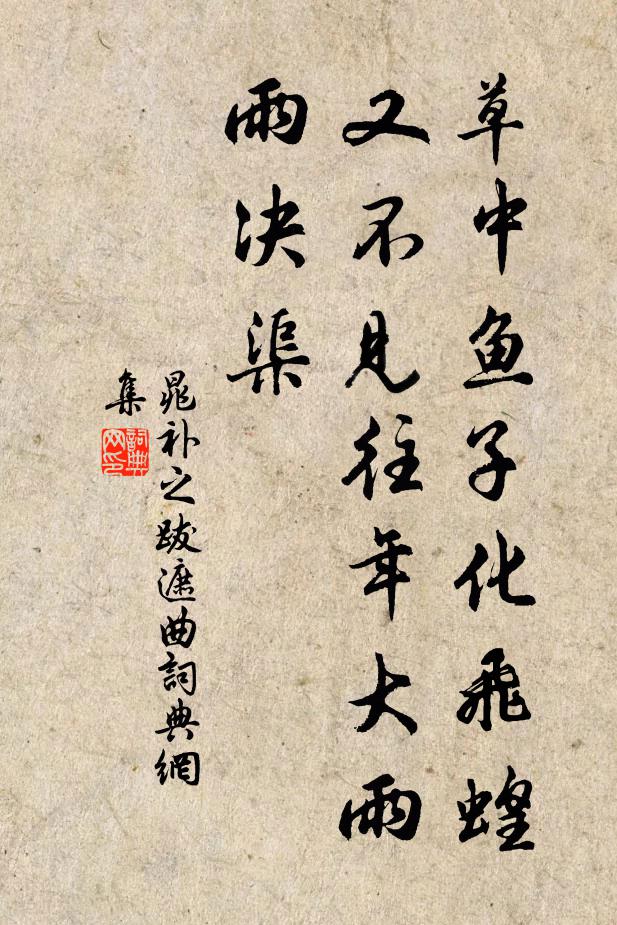 草中鱼子化飛蝗
又不見往年大雨
雨决渠
晁补之跋遮曲詞典網
集
詞典网印